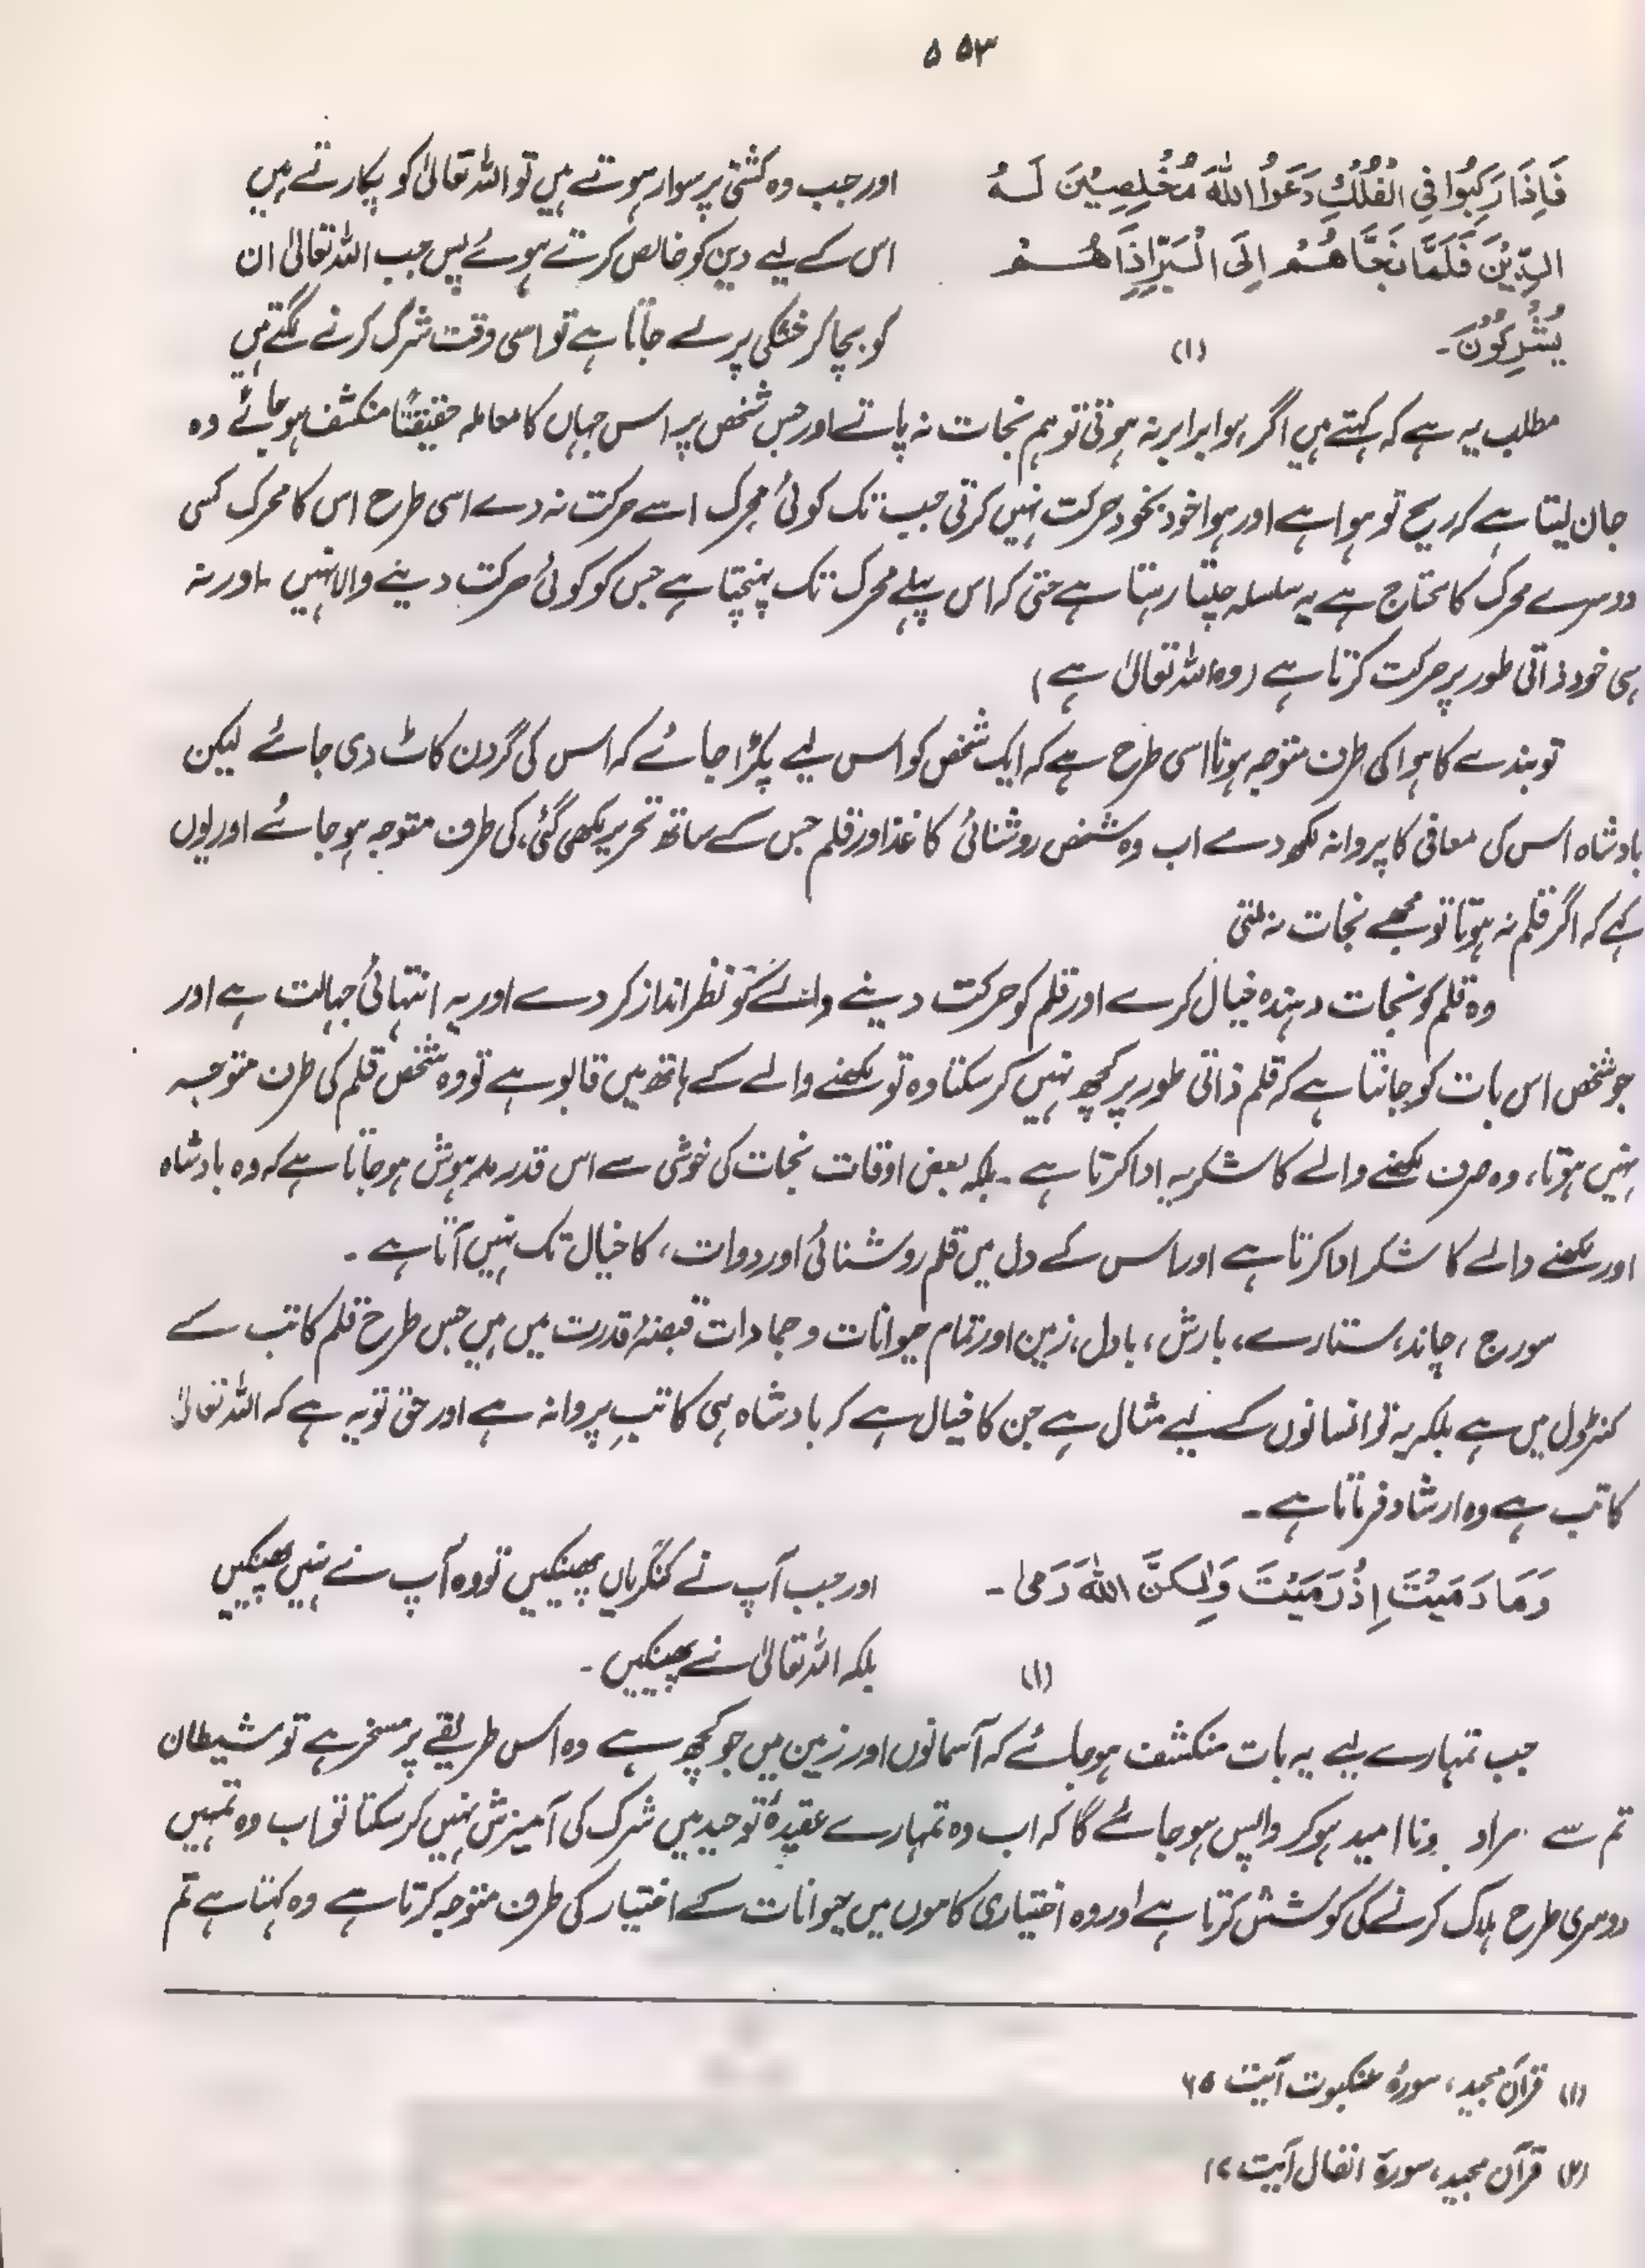 ۵۵۳
فَاِذَا رَکِبُوْا فِی الْفُلْکِ دَعَوُا اللّٰہَ مُخْلِصِیْنَ لَہُ
الدِّیْنَ فَلَمَّا نَجَّاھُمْ اِلَی الْبَرِّ اِذَا ھُمْ
یُشْرِکُوْنَ۔ (۱)
اور جب وہ کشتی پر سوار ہوتے ہیں تو اللہ تعالیٰ کو پکارتے ہیں
اس کے لیے دین کو خالص کرتے ہوئے پس جب اللہ تعالیٰ ان
کو بچا کر خشکی پر لے جاتا ہے تو اسی وقت شرک کرنے لگتے ہیں
مطلب یہ ہے کہ کہتے ہیں اگر ہوا برابر نہ ہوتی تو ہم نجات نہ پاتے اور جس شخص پر اس جہاں کا معاملہ حقیقتًا منکشف ہو جائے وہ
جان لیتا ہے کہ ریح تو ہوا ہے اور ہوا خود بخود حرکت نہیں کرتی جب تک کوئی محرک اسے حرکت نہ دے اسی طرح اس کا محرک کسی
دوسرے محرک کا محتاج ہے یہ سلسلہ چلتا رہتا ہے حتی کہ اس پہلے محرک تک پہنچتا ہے جس کو کوئی حرکت دینے والا نہیں ۔ اور نہ
ہی خود ذاتی طور پر حرکت کرتا ہے (وہ اللہ تعالیٰ ہے)
تو بندے کا ہوا کی طرف متوجہ ہونا اسی طرح ہے کہ ایک شخص کو اس لیے پکڑا جائے کہ اس کی گردن کاٹ دی جائے لیکن
بادشاہ اس کی معافی کا پروانہ لکھ دے اب وہ شخص روشنائی کاغذ اور قلم جس کے ساتھ تحریر لکھی گئی، کی طرف متوجہ ہو جائے اور یوں
کہے کہ اگر قلم نہ ہوتا تو مجھے نجات نہ ملتی
وہ قلم کو نجات دہندہ خیال کرے اور قلم کو حرکت دینے والے کو نظر انداز کر دے اور یہ انتہائی جہالت ہے اور
جو شخص اس بات کو جانتا ہے کہ قلم ذاتی طور پر کچھ نہیں کر سکتا وہ تو لکھنے والے کے ہاتھ میں قابو ہے تو وہ شخص قلم کی طرف متوجہ
نہیں ہوتا، وہ صرف لکھنے والے کا شکریہ ادا کرتا ہے ۔ بلکہ بعض اوقات نجات کی خوشی سے اس قدر مدہوش ہو جاتا ہے کہ وہ بادشاہ
اور لکھنے والے کا شکر ادا کرتا ہے اور اس کے دل میں قلم روشنائی اور دوات، کا خیال تک نہیں آتا ہے ۔
سورج ، چاند، ستارے، بارش ، بادل، زمین اور تمام حیوانات و جمادات قبضۂ قدرت میں ہیں جس طرح قلم کاتب کے
کنٹرول میں ہے بلکہ یہ تو انسانوں کے لیے مثال ہے جن کا خیال ہے کہ بادشاہ ہی کاتبِ پروانہ ہے اور حق تو یہ ہے کہ اللہ تعالیٰ
کاتب ہے وہ ارشاد فرماتا ہے ۔
وَمَا رَمَیْتَ اِذْ رَمَیْتَ وَلٰکِنَّ اللّٰہَ رَمٰی ۔
(۱)
اور جب آپ نے کنکریاں پھینکیں تو وہ آپ نے نہیں پھینکیں
بلکہ اللہ تعالیٰ نے پھینکیں ۔
جب تمہارے لیے یہ بات منکشف ہو جائے کہ آسمانوں اور زمین میں جو کچھ ہے وہ اس طریقے پر مسخر ہے تو شیطان
تم سے مراد ونا امید ہو کر واپس ہو جائے گا کہ اب وہ تمہارے عقیدۂ توحید میں شرک کی آمیزش نہیں کر سکتا تو اب وہ تمہیں
دوسری طرح ہلاک کرنے کی کوشش کرتا ہے اور وہ اختیاری کاموں میں حیوانات کے اختیار کی طرف متوجہ کرتا ہے وہ کہتا ہے تم
(۱) قرآن مجید، سورۂ عنکبوت آیت ۶۵
(۲) قرآن مجید، سورۃ انفال آیت ۱۷